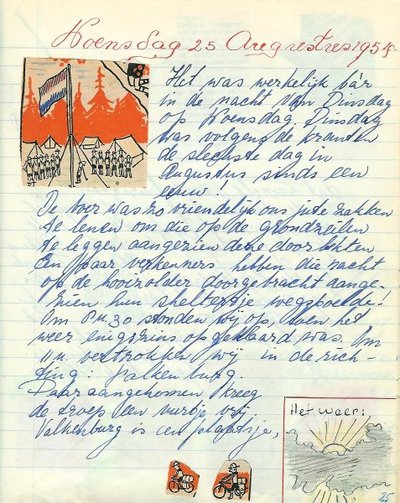 Woensdag 25 Augustus 1954
Het was werkelijk bár
in de nacht van Dinsdag
op Woensdag. Dinsdag
was volgens de kranten
de slechtste dag in
Augustus sinds een
eeuw!
De boer was zo vriendelijk ons jute zakken
te lenen om die op de grondzeilen
te leggen aangezien deze doorlekten
Een paar verkenners hebben die nacht
op de hooizolder doorgebracht aange-
zien hun sheltertje wegspoelde!
Om 8 u. 30 stonden wij op, toen het
weer enigszins opgeklaard was. Om
11 u. vertrokken wij in de rich-
ting: Valkenburg.
Daar aangekomen kreeg
de troep een uurtje vrij.
Valkenburg is een plaatsje,
Het weer:
25